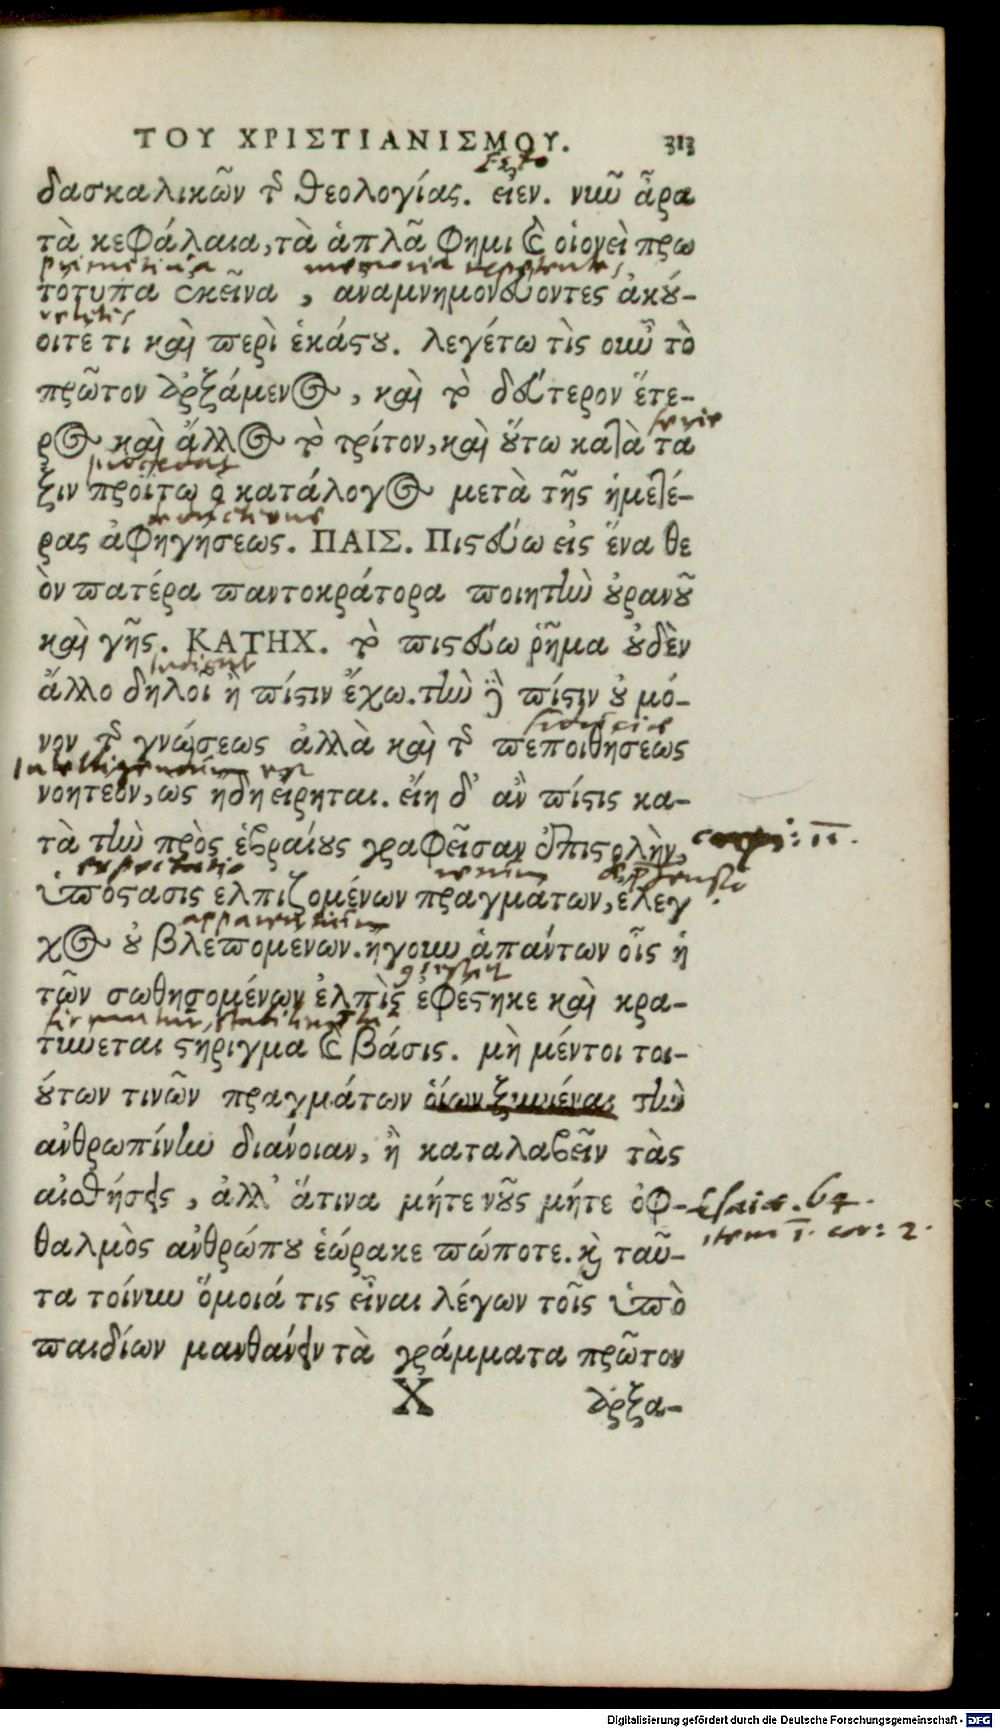 ΤΟΥ ΧΡΙΣΤΙΑΝΙΣΜΟΥ. 313
Esto
δασκαλικῶν τῆς θεολογίας. εἶεν. νῦν ἆρα
τὰ κεφάλαια, τὰ ἁπλᾶ φημι καὶ οἱονεὶ πρω
primitiua memoria repetentes
τότυπα ἐκεῖνα, ἀναμνημονεύοντες ἀκού-
velitis
οιτε τι καὶ περὶ ἑκάστου. λεγέτω τὶς οὖν τὸ
πρῶτον ἀρξάμενος, καὶ τὸ δεύτερον ἕτε-
serie
ρος καὶ ἄλλος τὸ τρίτον, καὶ οὕτω κατὰ τα
procedat
ξιν προΐτω ὁ κατάλογος μετὰ τῆς ἡμετέ-
ρας ἀφηγήσεως. ΠΑΙΣ. Πιστεύω εἰς ἕνα θε
ὸν πατέρα παντοκράτορα ποιητὴν οὐρανοῦ
καὶ γῆς. ΚΑΤΗΧ. τὸ πιστεύω ῥῆμα οὐδὲν
indicat
ἄλλο δηλοῖ ἢ πίστιν ἔχω. τὴν δὲ πίστιν οὐ μό-
fiduciae
νον τῆς γνώσεως ἀλλὰ καὶ τῆς πεποιθήσεως
Intelligendum est
νοητέον, ὡς ἤδη εἴρηται. εἴη δ' ἂν πίστις κα-
τὰ τὴν πρὸς ἑβραίους γραφεῖσαν ἐπιστολὴν,
expectatio rerum
ὑπόστασις ἐλπιζομένων πραγμάτων, ἔλεγ
apparentium
χος οὐ βλεπομένων. ἤγουν ἁπάντων οἷς ἡ
τῶν σωθησομένων ἐλπὶς ἐφέστηκε καὶ κρα-
τύνεται στήριγμα καὶ βάσις. μὴ μέντοι τοι-
ούτων τινῶν πραγμάτων οἵων ξυνιέναι τὴν
ἀνθρωπίνην διάνοιαν, ἢ καταλαβεῖν τὰς
αἰσθήσεις, ἀλλ' ἅτινα μήτε νοῦς μήτε ὀφ-
Esaiae. 64.
item 1. cor: 2.
θαλμὸς ἀνθρώπου ἑώρακε πώποτε. καὶ ταῦ-
τα τοίνυν ὅμοιά τις εἶναι λέγων τοῖς ὑπὸ
παιδίων μανθάνειν τὰ γράμματα πρῶτον
Χ ἀρξα-
Digitalisierung gefördert durch die Deutsche Forschungsgemeinschaft - DFG